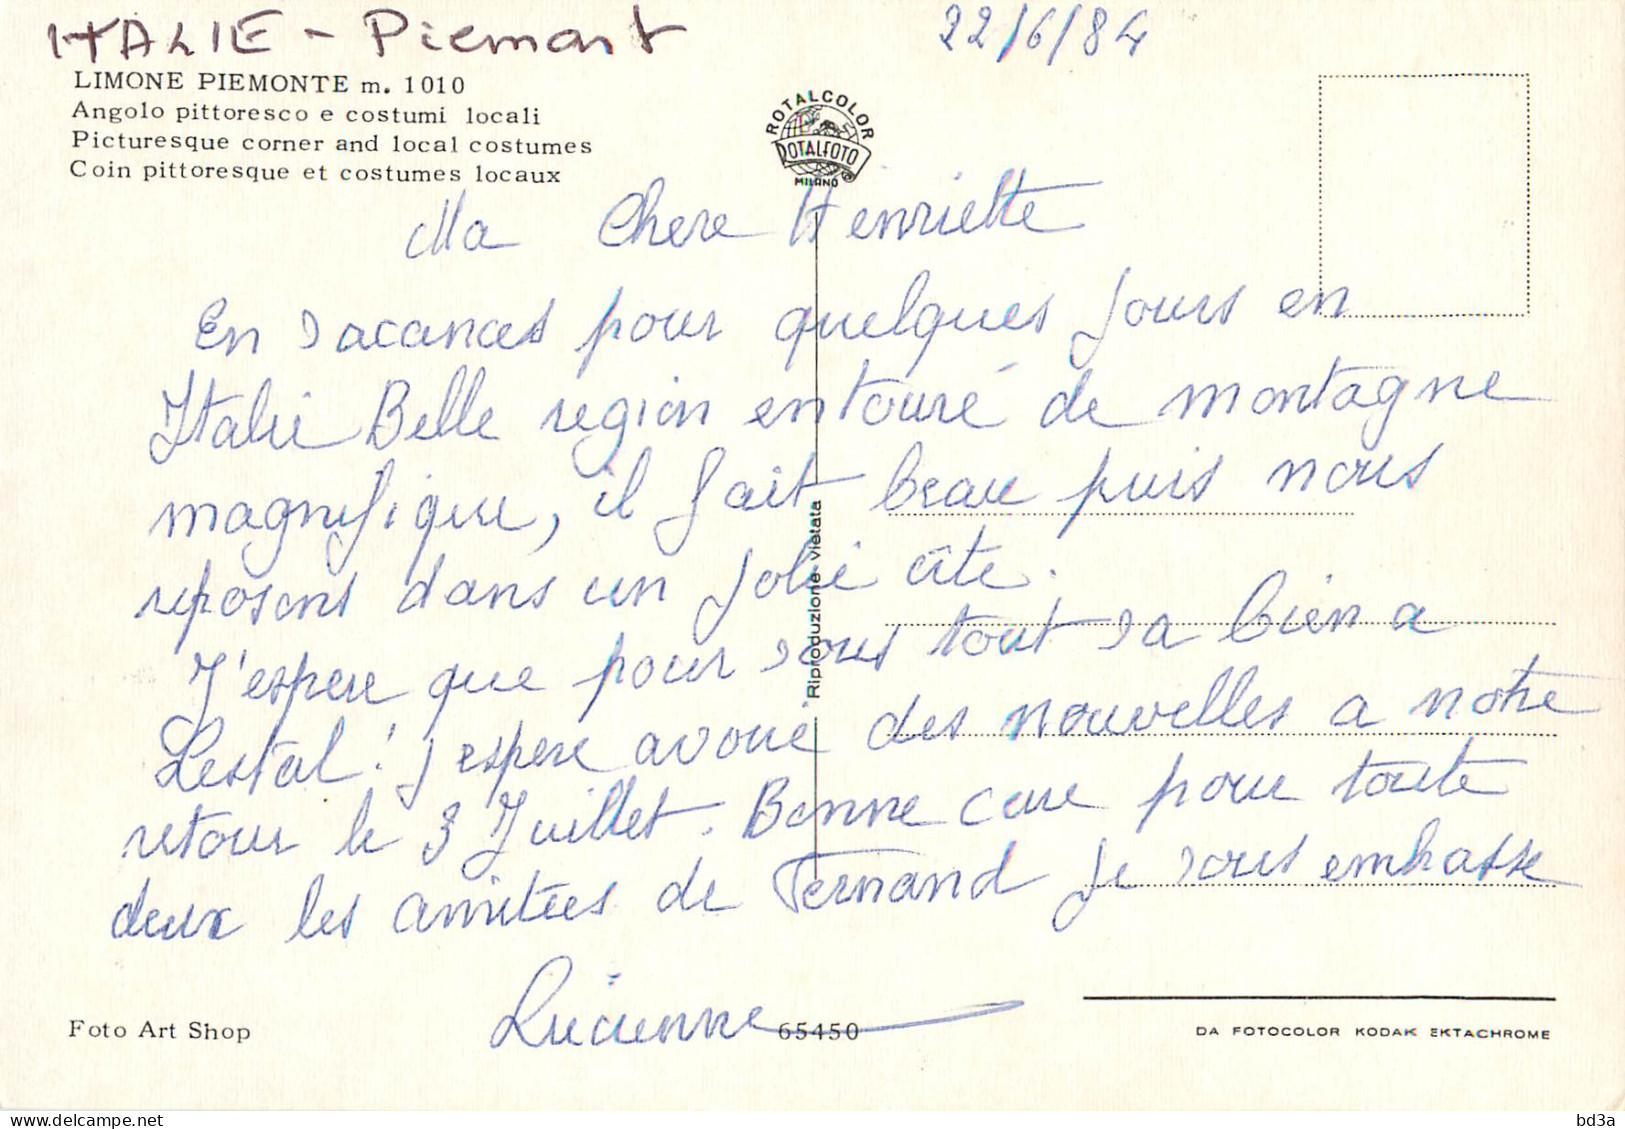 ITALIE - Piemont
22/6/84
LIMONE PIEMONTE m. 1010
Angolo pittoresco e costumi locali
Picturesque corner and local costumes
Coin pittoresque et costumes locaux
ROTALCOLOR
ROTALFOTO
MILANO
Ma Chere Henriette
En vacances pour quelques jours en
Italie Belle region entouré de montagne
magnifique, il fait beau puis nous
reposons dans un jolie
J'espere que pour vous tout va bien a
Lestal ! j'espere avoue des nouvelles a notre
retour le 3 Juillet. Bonne cure pour toute
deux les amitées de Fernand je vous embrasse
Lucienne
Riproduzione vietata
Foto Art Shop
65450
DA FOTOCOLOR KODAK EKTACHROME
bd3a